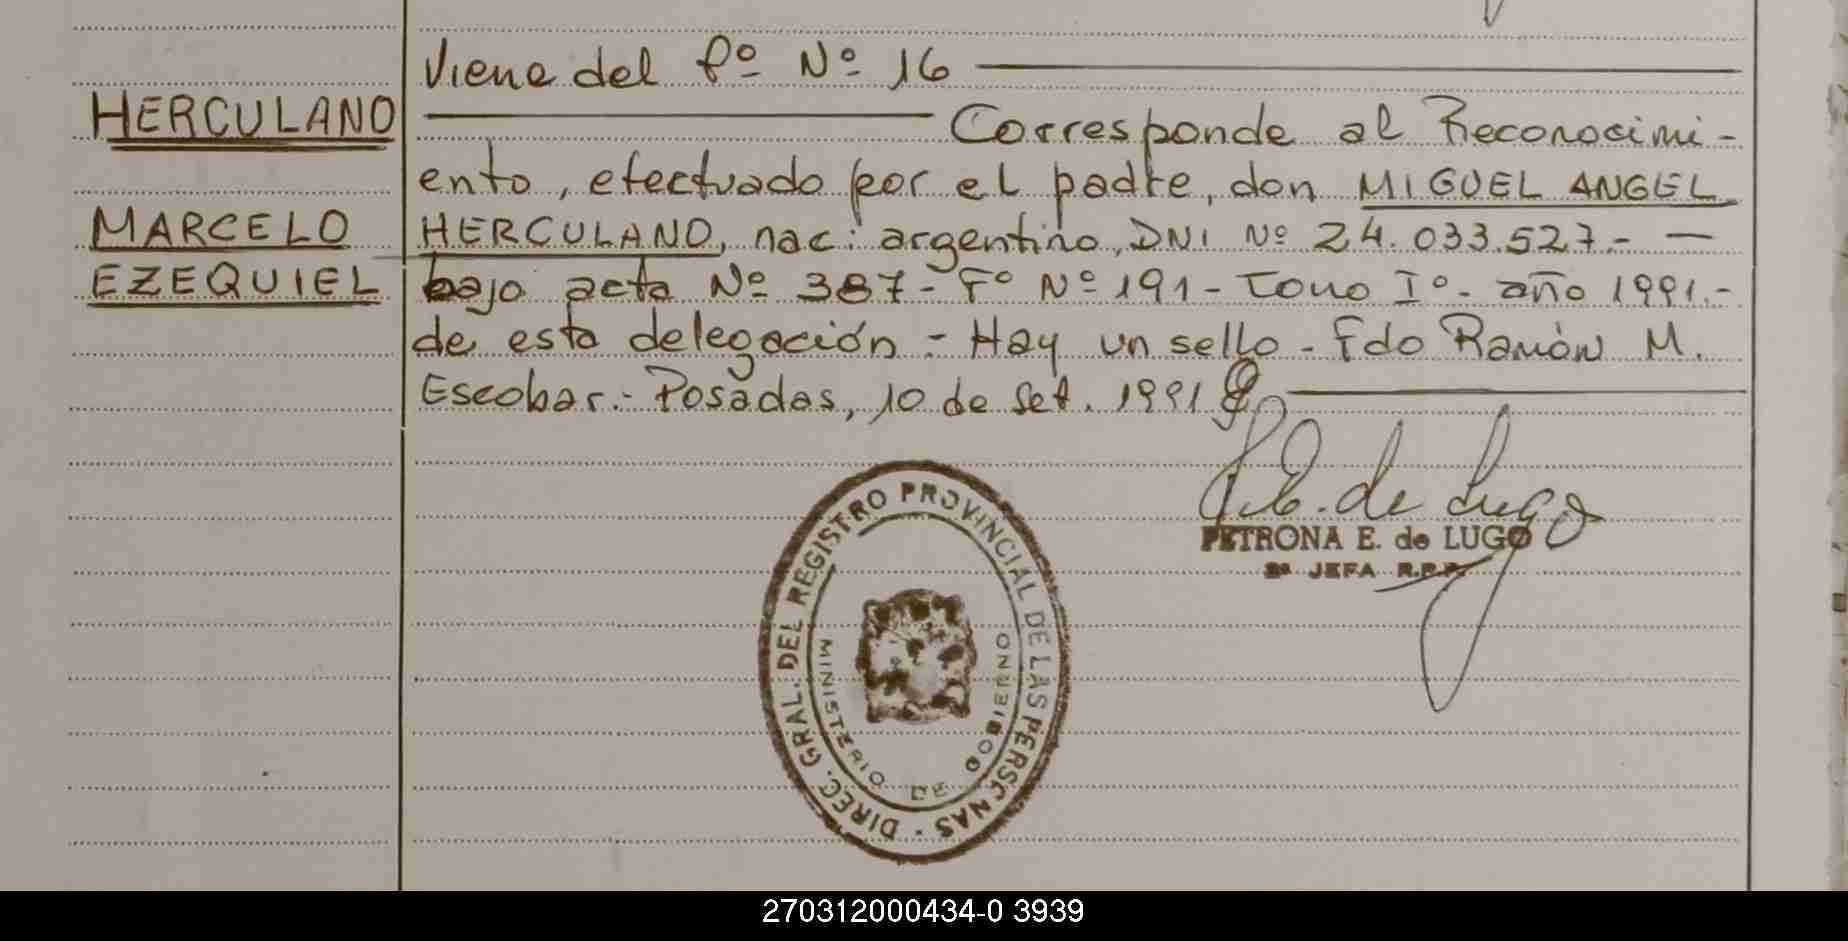 Viene del fº Nº 16
HERCULANO
Corresponde al Reconocimi-
ento, efectuado por el padre, don MIGUEL ANGEL
MARCELO
HERCULANO, nac: argentino, DNI Nº 24.033.527.-
EZEQUIEL
bajo acta Nº 387- Fº Nº 191- Tomo Iº- año 1991.-
de esta delegación - Hay un sello - Fdo Ramón M.
Escobar.- Posadas, 10 de Set. 1991
P.E. de Lugo
PETRONA E. de LUGO
2ª JEFA R.P.P.
DIREC. GRAL. DEL REGISTRO PROVINCIAL DE LAS PERSONAS
MINISTERIO DE GOBIERNO
270312000434-0 3939